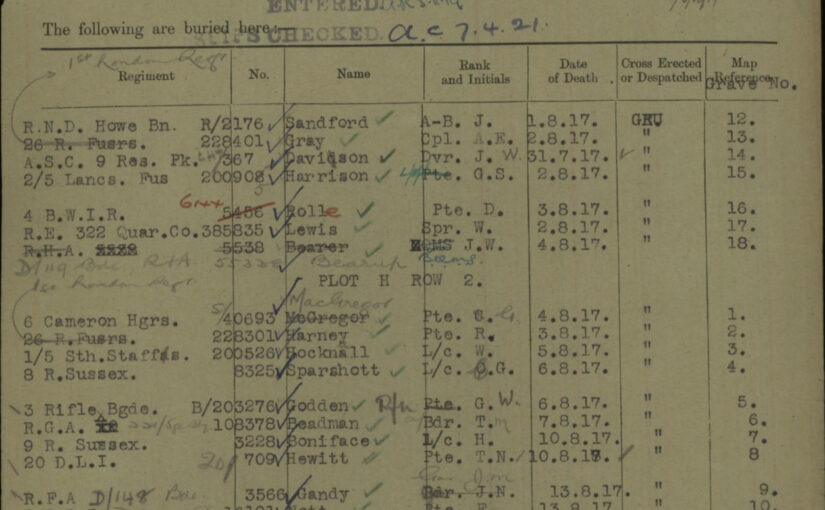 ENTERED
The following are buried here:—
CHECKED. a.c 7.4.21.
1st London Regt
Regiment No. Name Rank and Initials Date of Death Cross Erected or Despatched Map Reference Grave No.
R.N.D. Howe Bn. R/2176 Sandford A-B. J. 1.8.17. GRU 12.
26 R. Fusrs. 228401 Gray Cpl. A.E. 2.8.17. " 13.
A.S.C. 9 Res. Pk. 367 Davidson Dvr. J. W. 31.7.17. " 14.
2/5 Lancs. Fus 200908 Harrison Pte. G.S. 2.8.17. " 15.
4 B.W.I.R. 5456 Rolle Pte. D. 3.8.17. " 16.
R.E. 322 Quar.Co. 385835 Lewis Spr. W. 2.8.17. " 17.
R.H.A. 5538 Bearer J.W. 4.8.17. " 18.
D/119 Bde RFA Bearup
PLOT H ROW 2.
1st London Regt
MacGregor
6 Cameron Hgrs. S/40693 McGregor Pte. 4.8.17. " 1.
26 R.Fusrs. 228301 Harney Pte. R. 3.8.17. " 2.
1/5 Sth.Staffs. 200526 Hocknall L/c. W. 5.8.17. " 3.
8 R.Sussex. 8325 Sparshott L/c. G. 6.8.17. " 4.
3 Rifle Bgde. B/203276 Godden R/n Pte. G. W. 6.8.17. " 5.
R.G.A. 108378 Beadman Bdr. T. 7.8.17. " 6.
9 R. Sussex. 3228 Boniface L/c. H. 10.8.17. " 7.
20 D.L.I. 20/ 709 Hewitt Pte. T.N. 10.8.17. " 8
R.F.A D/148 Bde 3566 Gandy J.N. 13.8.17. " 9.
13.8.17. 10.